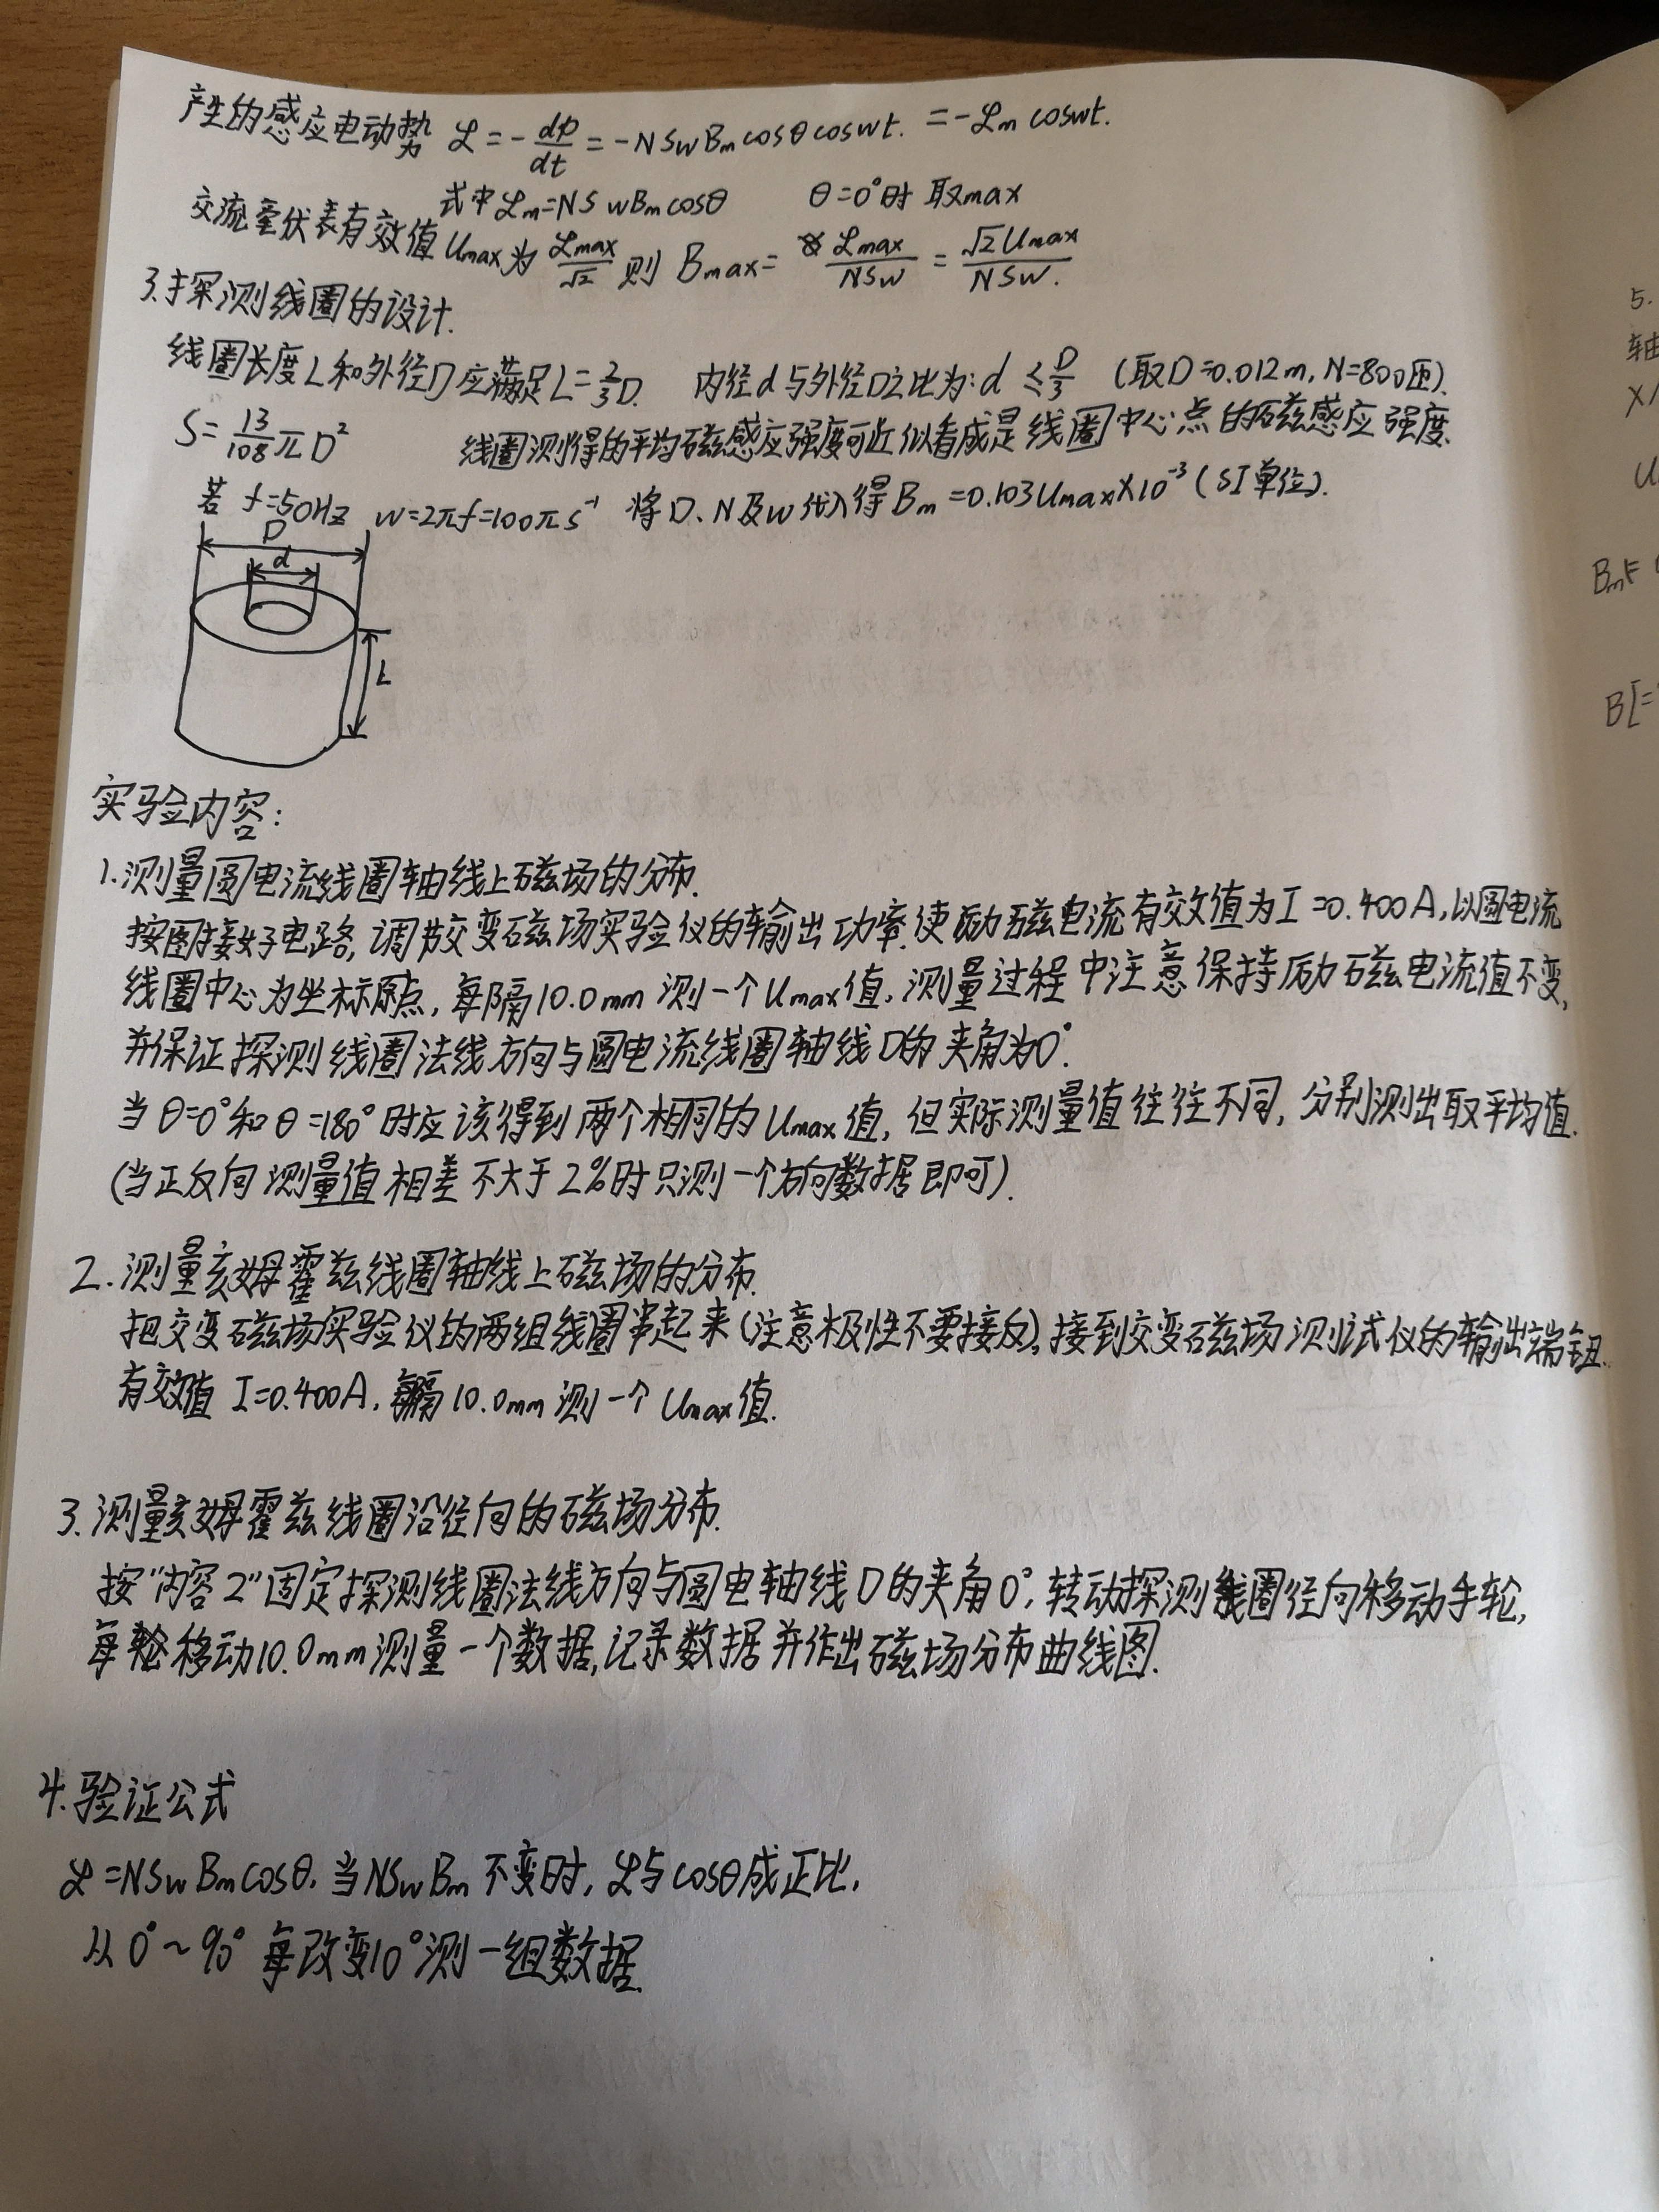 产生的感应电动势 ℰ = -dφ/dt = -NSωBm cosθcosωt. = -ℰm cosωt.
式中ℰm=NSωBm cosθ θ=0°时 取max
交流毫伏表有效值Umax为 ℰmax/√2 则 Bmax= ℰmax/NSω = √2Umax/NSω.
3.探测线圈的设计.
线圈长度L和外径D应满足L=2/3D. 内径d与外径D之比为:d ≤D/3 (取D=0.012m, N=800匝).
S=13/108πD² 线圈测得的平均磁感应强度可近似看成是线圈中心点的磁感应强度.
若 f=50Hz ω=2πf=100πs⁻¹ 将D、N及ω代入得Bm=0.103Umax×10⁻³(SI单位).
D
d
L
实验内容:
1.测量圆电流线圈轴线上磁场的分布.
按图接好电路,调节交变磁场实验仪的输出功率.使励磁电流有效值为I=0.400A,以圆电流
线圈中心为坐标原点,每隔10.0mm测一个Umax值,测量过程中注意保持励磁电流值不变,
并保证探测线圈法线方向与圆电流线圈轴线D的夹角为0°.
当θ=0°和θ=180°时应该得到两个相同的Umax值,但实际测量值往往不同,分别测出取平均值.
(当正反向测量值相差不大于2%时只测一个方向数据即可).
2.测量亥姆霍兹线圈轴线上磁场的分布.
把交变磁场实验仪的两组线圈串起来(注意极性不要接反),接到交变磁场测试仪的输出端钮.
有效值 I=0.400A,每隔10.0mm测一个Umax值.
3.测量亥姆霍兹线圈沿径向的磁场分布.
按"内容2"固定探测线圈法线方向与圆电轴线D的夹角0°,转动探测线圈径向移动手轮,
每轮移动10.0mm测量一个数据,记录数据并作出磁场分布曲线图.
4.验证公式
ℰ=NSωBmcosθ.当NSωBm不变时,ℰ与cosθ成正比,
从0°~90°每改变10°测一组数据.
5.
轴